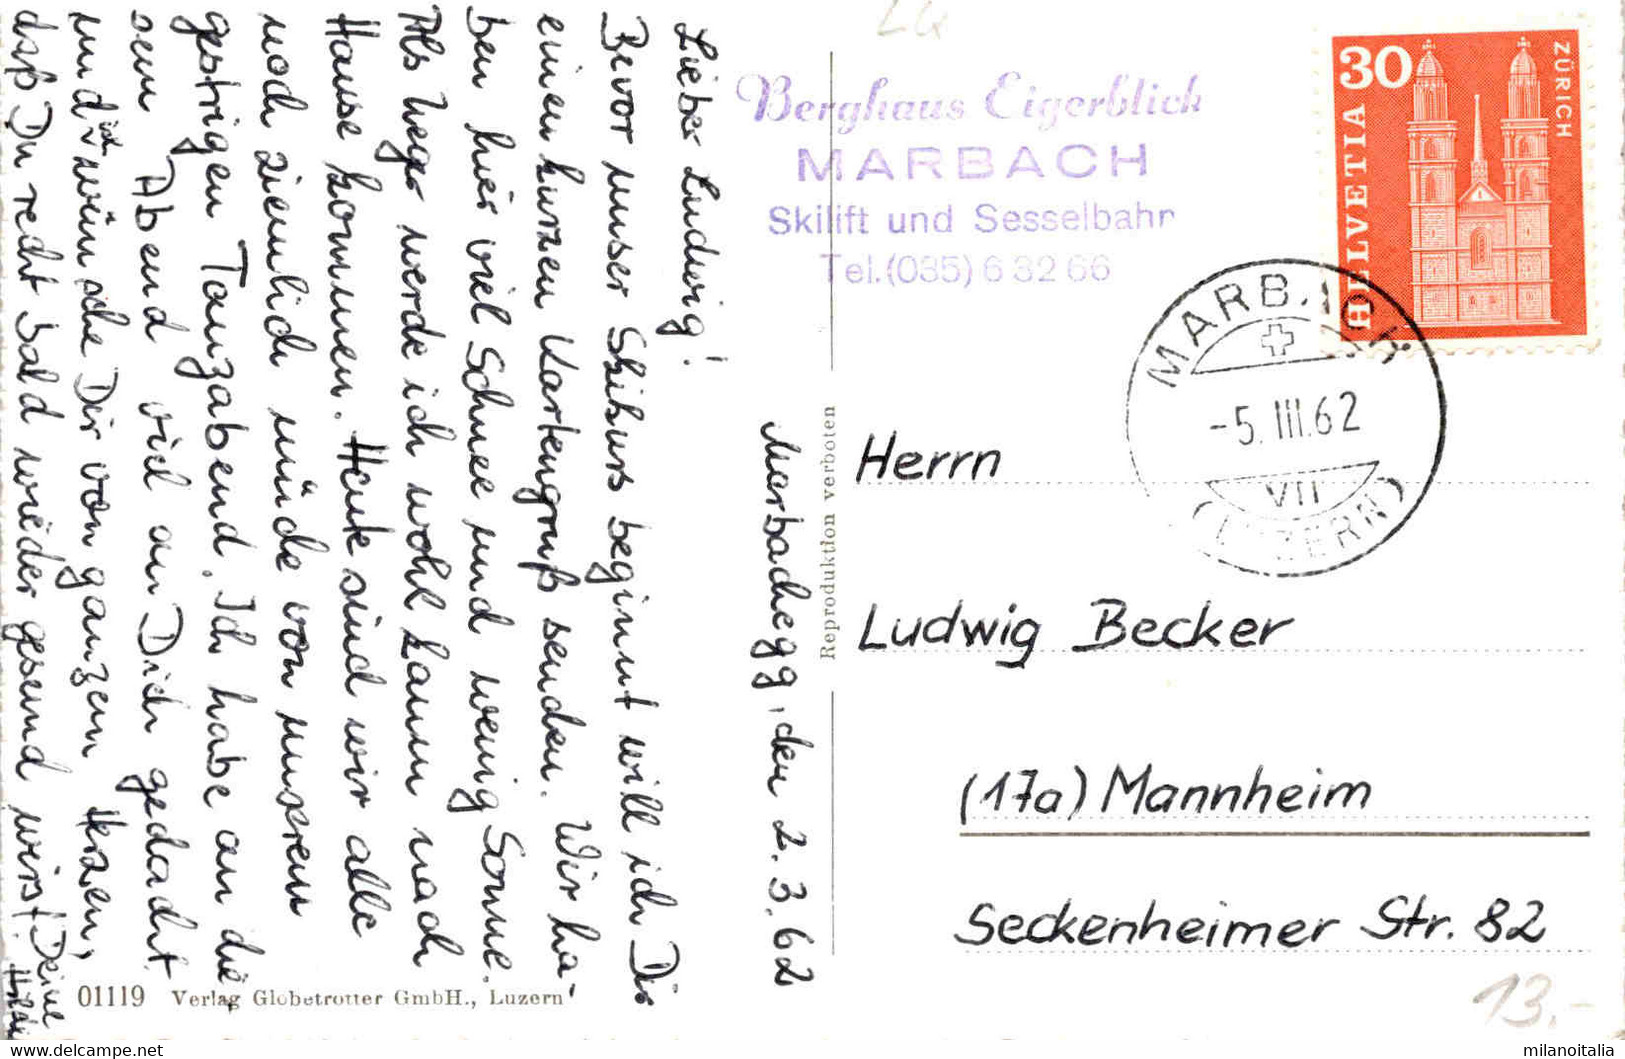 Marbachegg, den 2.3.62
Lieber Ludwig!
Bevor unser Skikurs beginnt will ich Dir
einen kurzen Kartengruß senden. Wir ha-
ben hier viel Schnee und wenig Sonne.
Als Neger werde ich wohl kaum nach
Hause kommen. Heute sind wir alle
noch ziemlich müde von unserem
gestrigen Tanzabend. Ich habe an die-
sem Abend viel an Dich gedacht
und wünsche Dir von ganzem Herzen,
daß Du recht bald wieder gesund wirst! Deine
Hildi
01119 Verlag Globetrotter GmbH., Luzern
Reproduktion verboten
Berghaus Eigerblick
MARBACH
Skilift und Sesselbahn
Tel. (035) 6 32 66
30
HELVETIA
ZÜRICH
MARBACH
-5.III.62
VII
(LUZERN)
Herrn
Ludwig Becker
(17a) Mannheim
Seckenheimer Str. 82
13,-
milanoitalia